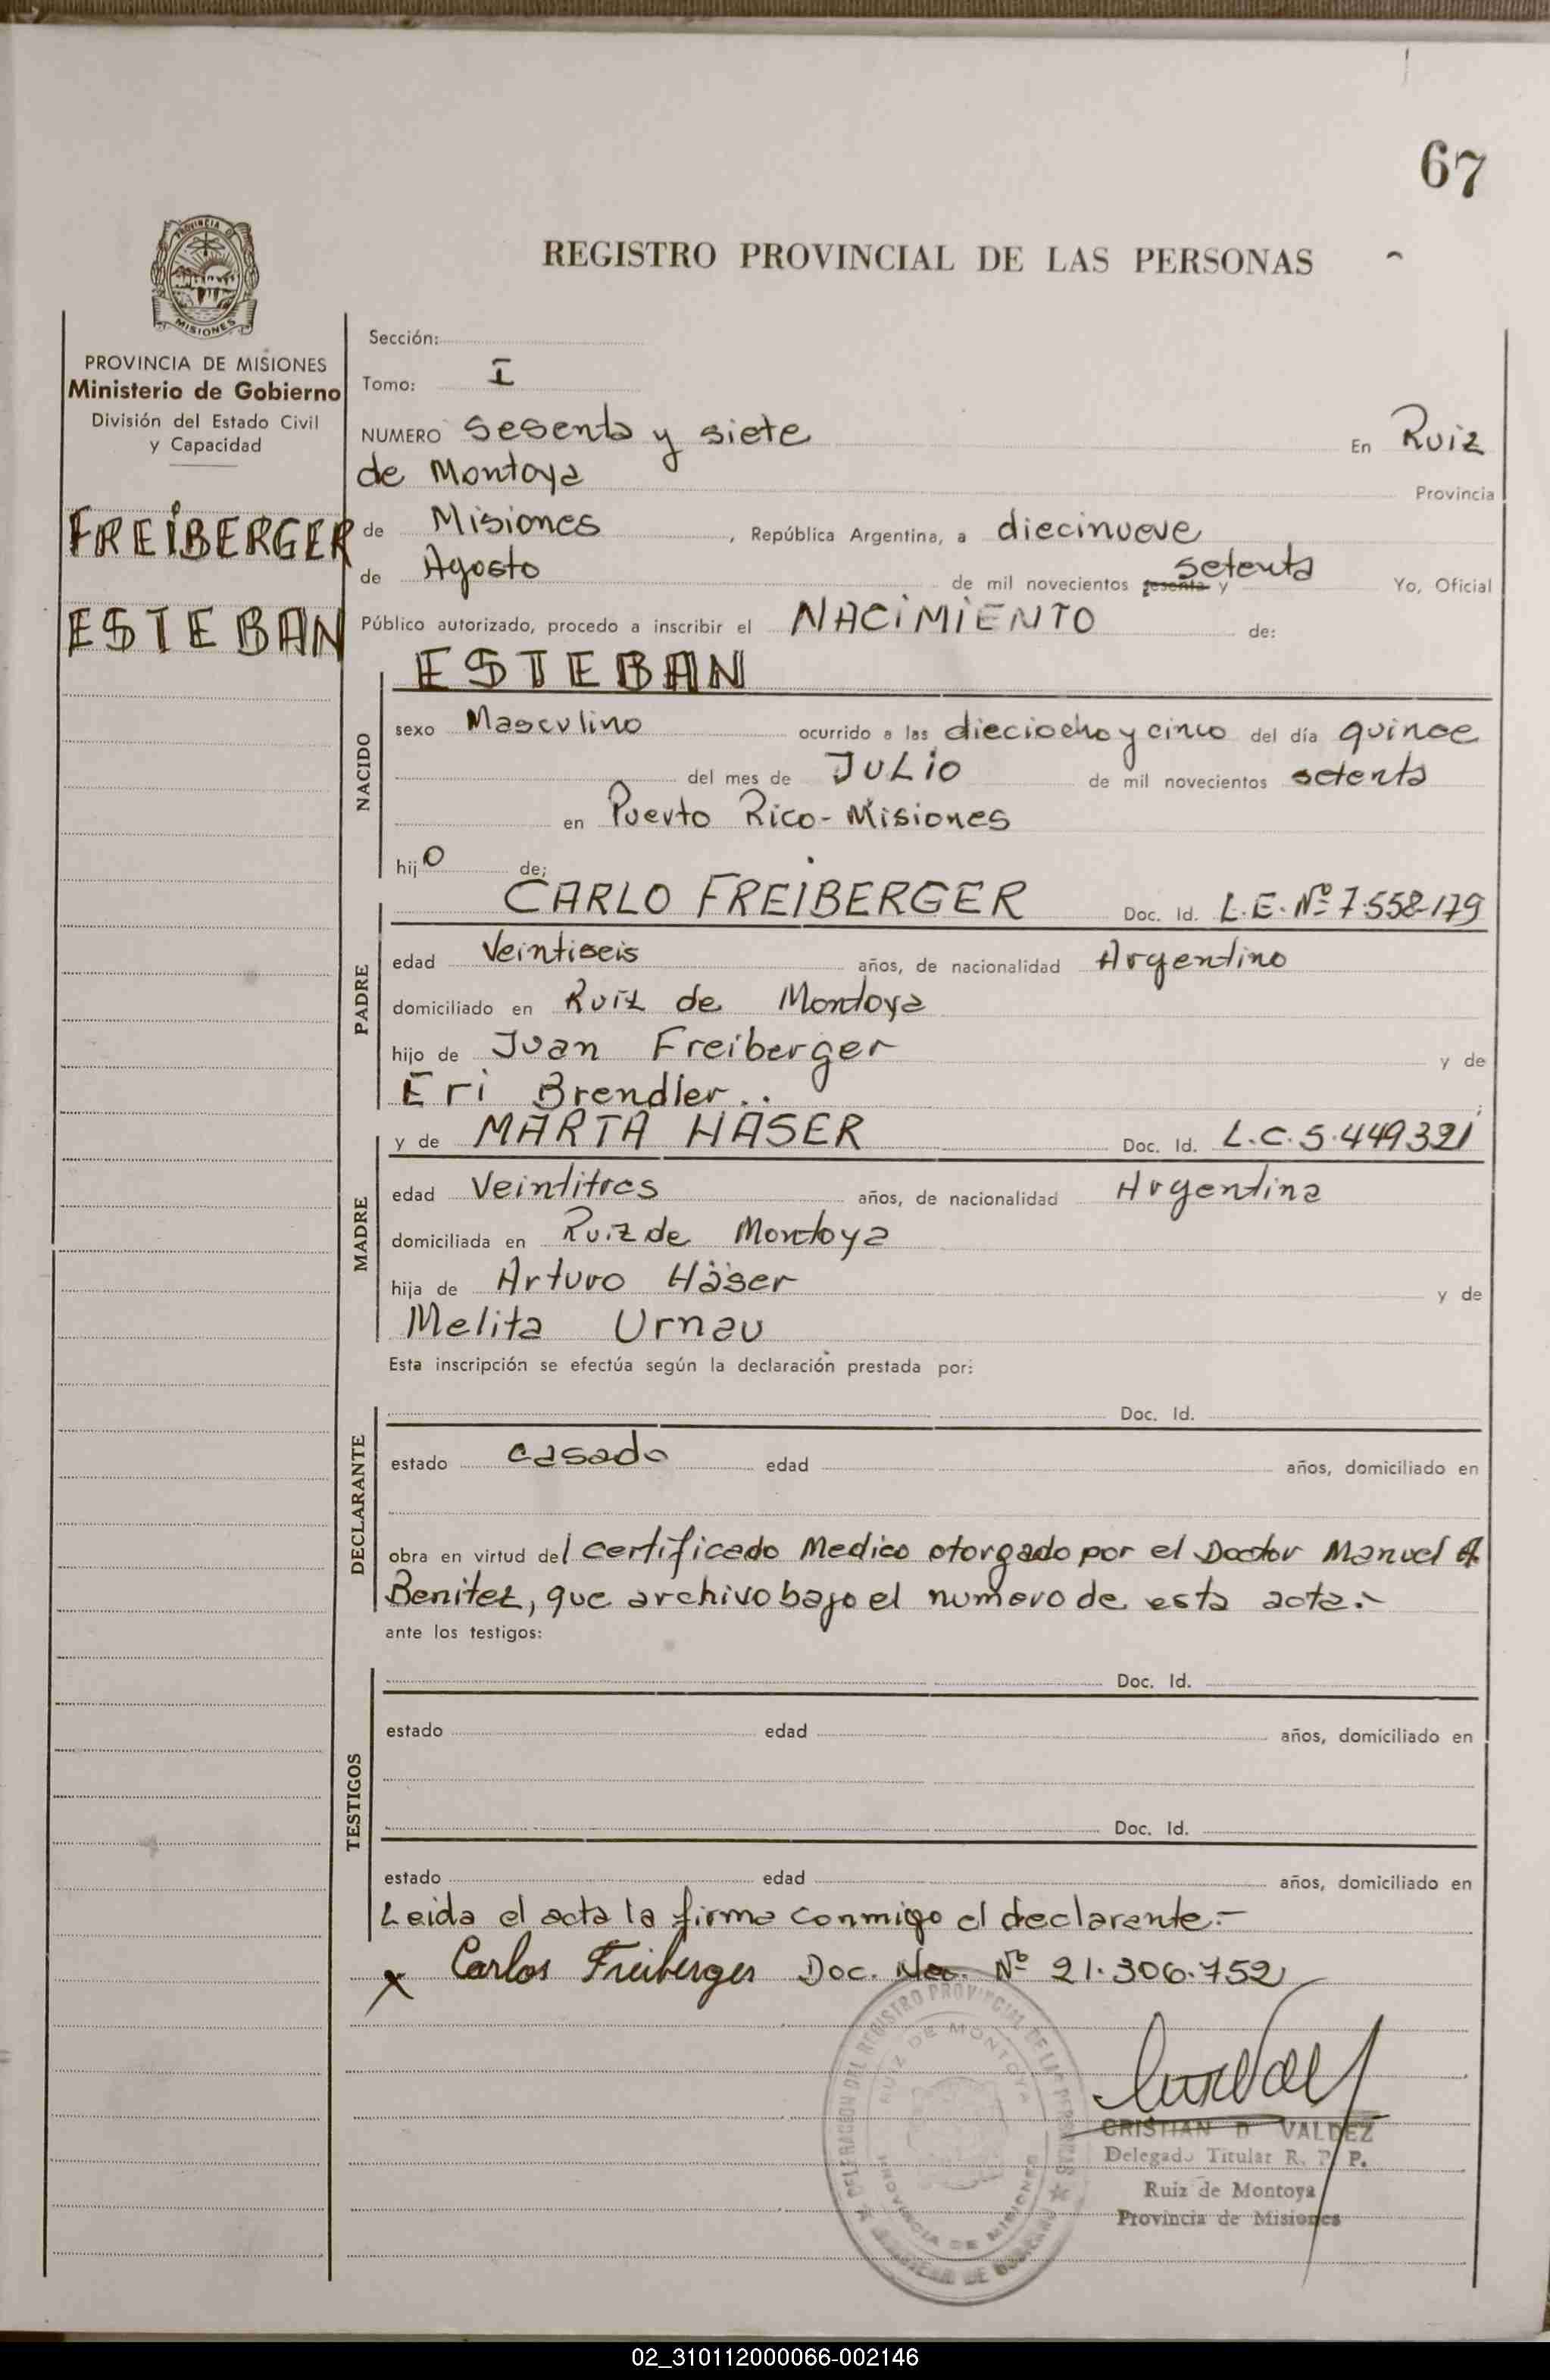 67
PROVINCIA DE
MISIONES
REGISTRO PROVINCIAL DE LAS PERSONAS
PROVINCIA DE MISIONES
Ministerio de Gobierno
División del Estado Civil
y Capacidad
FREIBERGER
ESTEBAN
Sección:
Tomo: I
NUMERO sesenta y siete En Ruiz
de Montoya Provincia
de Misiones, República Argentina, a diecinueve
de Agosto de mil novecientos sesenta y setenta Yo, Oficial
Público autorizado, procedo a inscribir el NACIMIENTO de:
NACIDO
ESTEBAN
sexo Masculino ocurrido a las dieciocho y cinco del día quince
del mes de JULIO de mil novecientos setenta
en Puerto Rico - Misiones
hijo de;
PADRE
CARLO FREIBERGER Doc. Id. L.E. Nº 7.558-179
edad Veintiseis años, de nacionalidad Argentino
domiciliado en Ruiz de Montoya
hijo de Juan Freiberger y de
Eri Brendler..
MADRE
y de MARTA HASER Doc. Id. L.C. 5.449321
edad Veintitres años, de nacionalidad Argentina
domiciliada en Ruiz de Montoya
hija de Arturo Häser y de
Melita Urnau
Esta inscripción se efectúa según la declaración prestada por:
DECLARANTE
Doc. Id.
estado casado edad años, domiciliado en
obra en virtud del certificado Medico otorgado por el Doctor Manuel A
Benitez, que archivo bajo el numero de esta acta.-
ante los testigos:
TESTIGOS
Doc. Id.
estado edad años, domiciliado en
Doc. Id.
estado edad años, domiciliado en
Leida el acta la firma conmigo el declarante.-
x Carlos Freiberger Doc. Nac. Nº 21.306.752
DELEGACION DEL REGISTRO PROVINCIAL DE LAS PERSONAS
RUIZ DE MONTOYA
PROVINCIA DE MISIONES
CRISTIAN D VALDEZ
Delegado Titular R. P. P.
Ruiz de Montoya
Provincia de Misiones
02_310112000066-002146